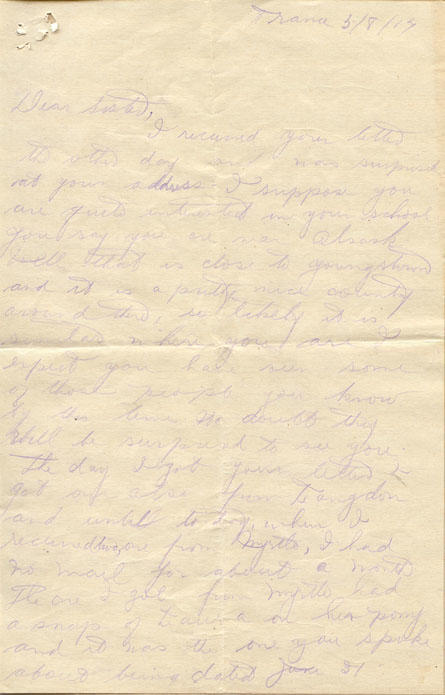 France 5/8/17
Dear Sister,
I received your letter
the other day and was surprised
at your address I suppose you
are quite interested in your school
you say you are near Alsask
well that is close to youngstown
and it is a pretty nice country
around there, so likely it is
similar where you are I
expect you have seen some
of those people you know
by this time no doubt they
will be surprised to see you.
The day I got your letter I
got one also from Langdon
and until to day, when I
received two, one from Myrtle, I had
no mail for about a month
The one I got from Myrtle had
a snap of on her pony
and it was the one you spoke
about being dated June 31